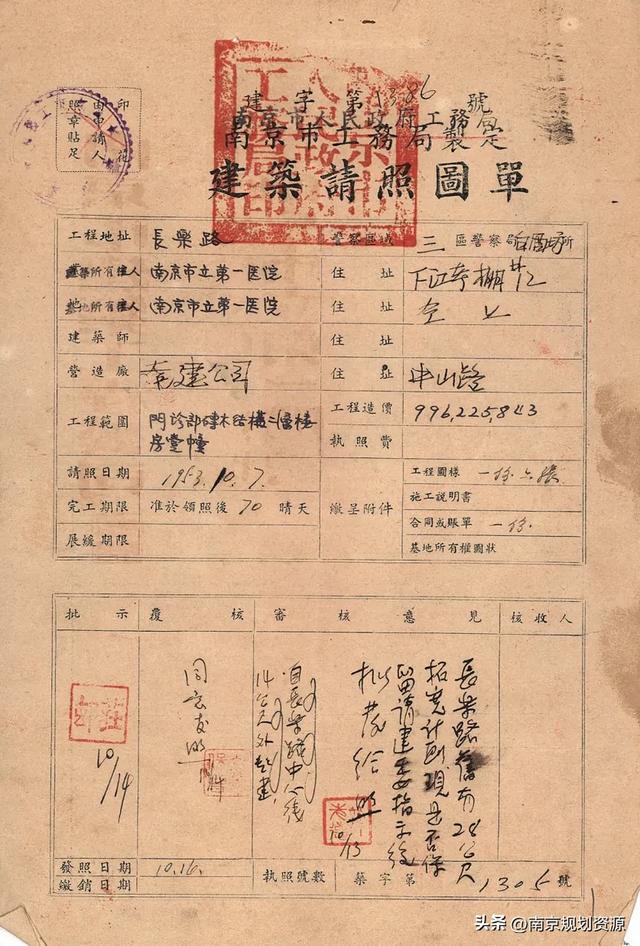 建字第1386號
南京市人民政府工務局
南京市工務局製定
建築請照圖單
印花
由申請人
照章貼足
工程地址 長樂路 警察區域 三 區警察局 所
建築所有權人 南京市立第一医院 住址 下江考棚#12
基地所有權人 南京市立第一医院 住址 仝上
建築師 住址
營造廠 公司 住址 中山路
工程範圍 門診部磚木结構二層樓房壹幢
工程造價 996,225,843
執照費
請照日期 1953.10.7.
完工期限 准於領照後70晴天
展緩期限
繳呈附件
工程圖樣 一份六張
施工説明書
合同或賬單 一份.
基地所有權圖狀
批示 覆核 審核意見 核收人
長樂路舊有28公尺
拓宽计劃現是否保
留請建委指示後
拟發给照
10/13
自長樂路中心线
14公尺外起建
同意发照
10/14
發照日期 10.16.
繳銷日期
執照號數 築字第1305號
头条@南京规划资源